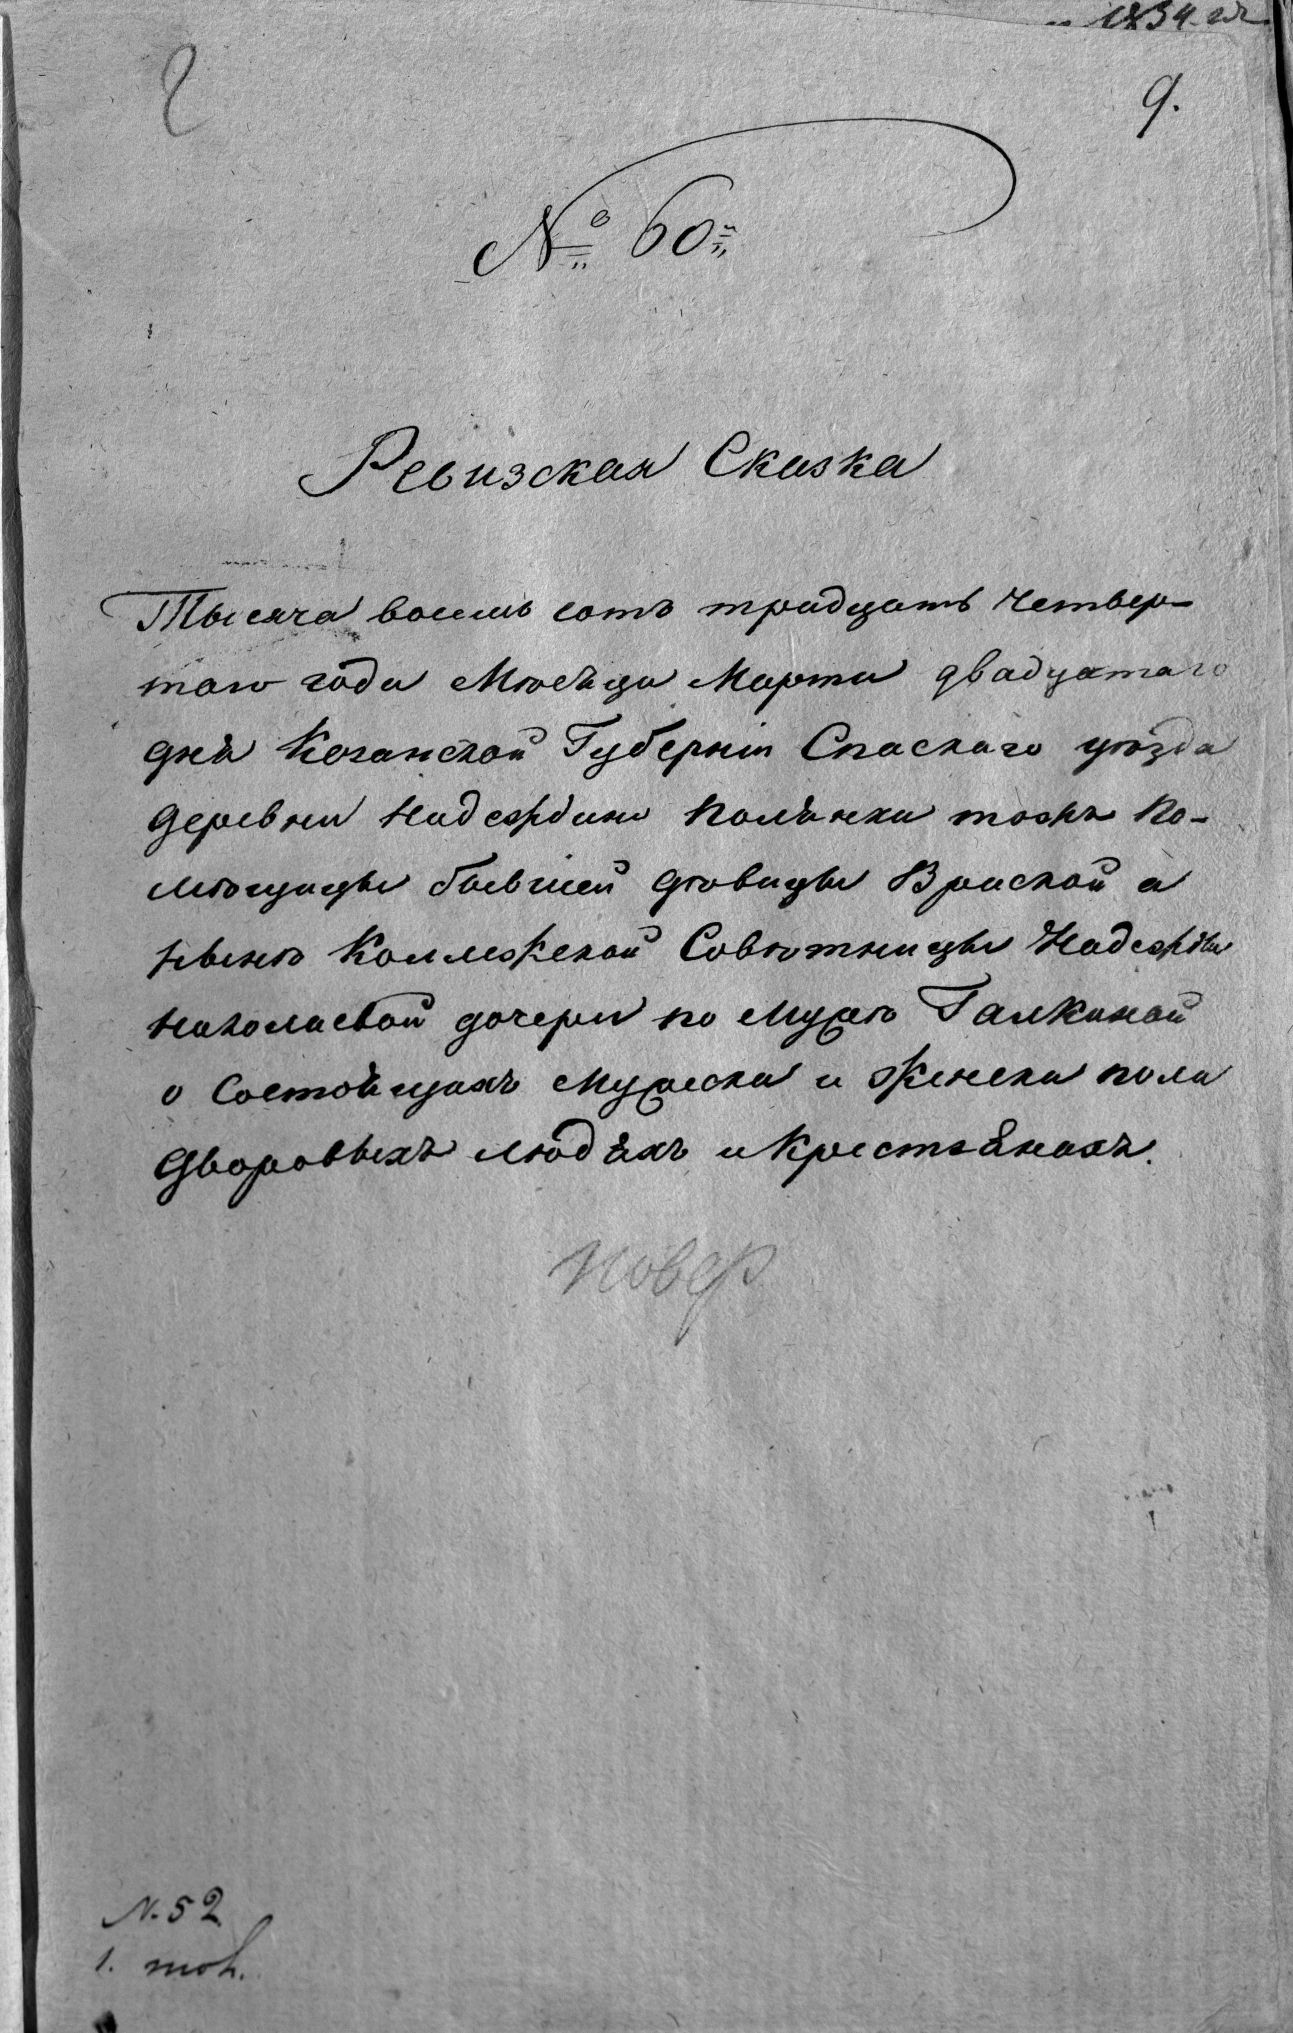 1834 г.
9.
№ 60й
Ревизская Сказка
Тысяча восемь сотъ тридцать четвер-
таго года Мѣсяца Марта двадцатаго
дня Казанской Губерніи Спаскаго уѣзда
деревни Надеждино Полянки тожъ По-
мѣщицы бывшей дѣвицы Враской а
нынѣ Коллежской Совѣтницы Надежды
Николаевой дочери по мужѣ Галкиной
о Состоящихъ мужеска и женска пола
Дворовыхъ людяхъ и Крестьянахъ.
повер
N. 52
1.